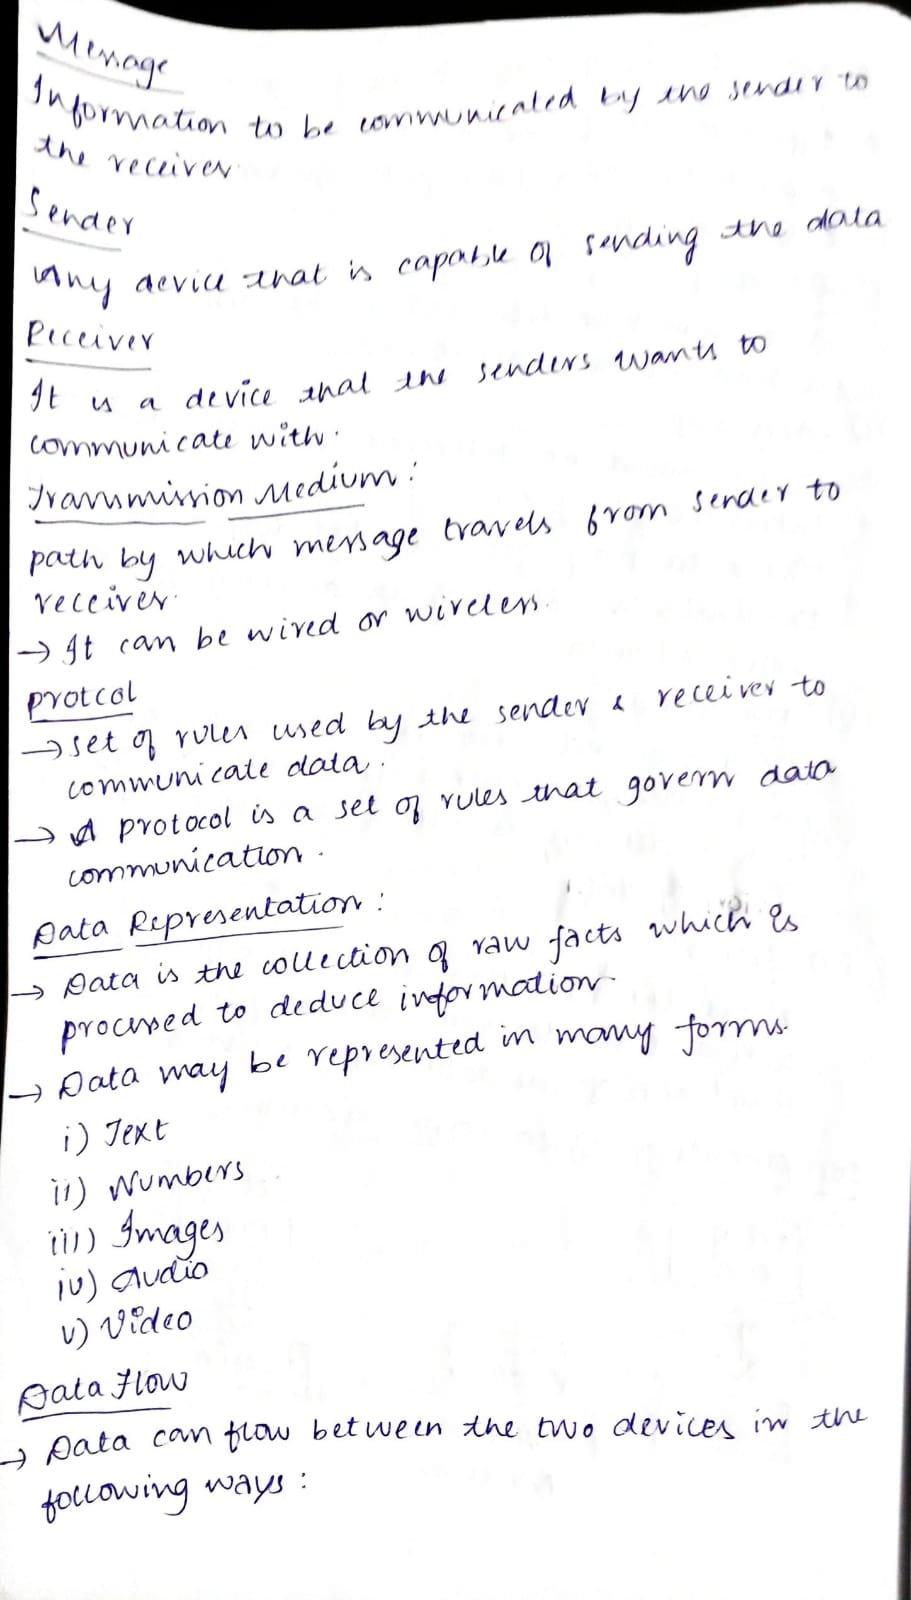 Message
Information to be communicated by the sender to
the receiver.
Sender
Any device that is capable of sending the data
Receiver
It is a device that the senders wants to
communicate with.
Transmission Medium:
path by which message travels from sender to
receiver.
→ It can be wired or wireless.
protcol
→ set of rules used by the sender & receiver to
communicate data.
→ A protocol is a set of rules that govern data
communication.
Data Representation:
→ Data is the collection of raw facts which is
processed to deduce information.
→ Data may be represented in many forms.
i) Text
ii) Numbers
iii) Images
iv) Audio
v) Video
Data Flow
→ Data can flow between the two devices in the
following ways: